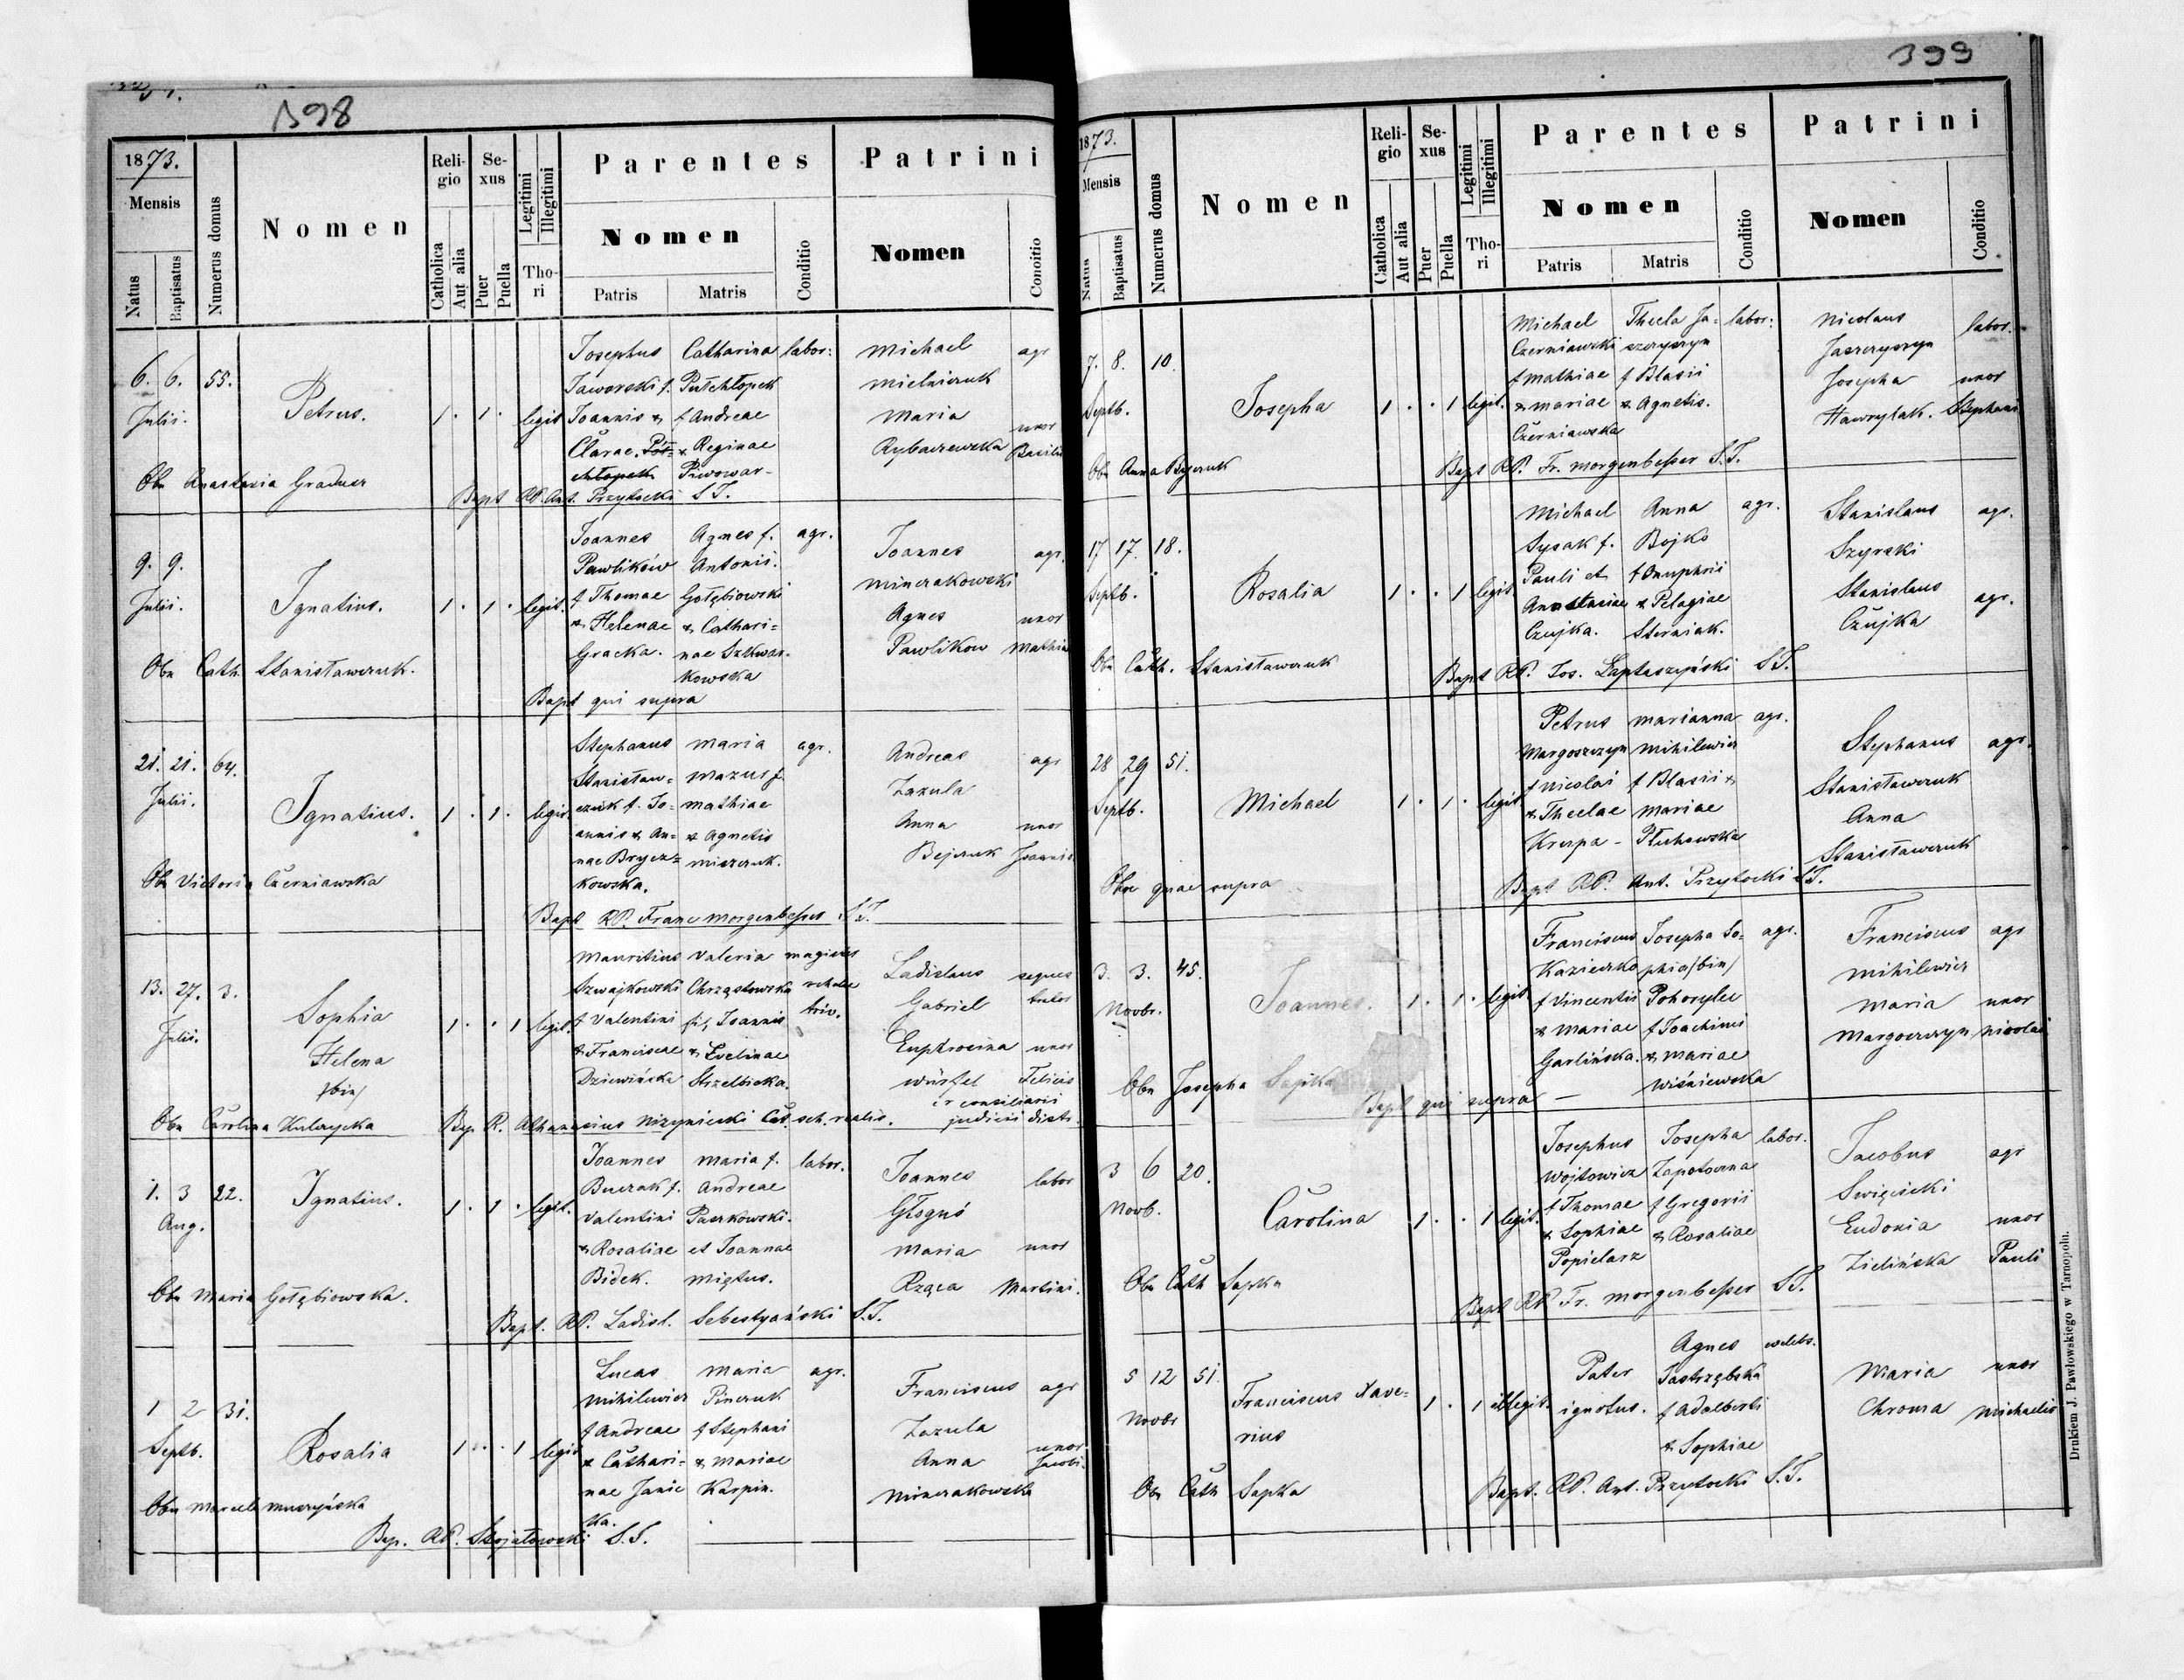 398
1873.
Mensis
Natus
Baptisatus
Numerus domus
Nomen
Religio
Catholica
Aut alia
Sexus
Puer
Puella
Legitimi
Illegitimi
Thori
Parentes
Nomen
Patris
Matris
Conditio
Patrini
Nomen
Conoitio
6. 6. 55.
Julii.
Petrus.
1 . 1 .
legit
Josephus
Jaworski f.
Joannis &
Clarae
Catharina
Półchłopek
f Andreae
& Reginae
Piwowar-
labor:
Michael
Mielniczuk
Maria
Rybaczewska
agr
uxor
Basilii
Obs Anastasia Graducz
Bapt RP. Ant. Przytocki S.J.
9. 9.
Julii.
Ignatius.
1 . 1 .
legit.
Joannes
Pawlików
f Thomae
& Helenae
Gracka.
Agnes f.
Antonii.
Gołębiowski
& Cathari=
nae Szkwar-
kowska
agr.
Joannes
Minczakowski
Agnes
Pawlikow
agr.
uxor
Mathia
Obs Cath. Stanisławczuk.
Bapt qui supra
21. 21. 64.
Julii.
Ignatius.
1 . 1 .
legit.
Stephanus
Stanisław=
czuk f. Jo=
annis & An=
nae Brycz=
kowska.
Maria
Mazur f.
Mathiae
& Agnetis
Miszczuk.
agr.
Andreas
Zazula
Anna
Bejczuk
agr
uxor
Joannis
Obs Victoria Czerniawska
Bapt RP. Franc Morgenbesser S.J.
13. 27. 3.
Julii.
Sophia
Helena
/bin/
1 . . 1
legit.
Mauritius
Szwajkowski
f Valentini
& Franciscae
Dziewińska
Valeria
Chrząstowska
fil, Joannis
& Evelinae
Strzelbicka.
magister
scholae
triv.
Ladislaus
Gabriel
Euphrosina
Würfel
uxor
Felicis
cr consiliarii
judicii distr.
Obs Carolina Kulczycka
Bap R. Athanasius Niżyniecki Cat. sch. realis.
1. 3 22.
Aug.
Ignatius.
1 . 1 .
legit.
Joannes
Buczak f.
Valentini
& Rosaliae
Bidek.
Maria f.
Andreae
Paczkowski.
et Joannae
Miętus.
labor.
Joannes
Głoguś
Maria
Rząca
labor
uxor
Martini.
Obs Maria Gołębiowska.
Bapt. RP. Ladisl. Sebestyański S.J.
1 2 31.
Septb.
Rosalia
1 . . 1
legit
Lucas
Mihilewicz
f Andreae
& Cathari=
nae Janic
Maria
Pinczuk
f Stephani
& Mariae
Karpin.
ka.
agr.
Franciscus
Zazula
Anna
Minczakowska
agr
uxor
Jacobi.
Obs Marcela Muszyńska
Bap. RP. S.J.
399
1873.
Mensis
Natus
Baptisatus
Numerus domus
Nomen
Religio
Catholica
Aut alia
Sexus
Puer
Puella
Legitimi
Illegitimi
Thori
Parentes
Nomen
Patris
Matris
Conditio
Patrini
Nomen
Conditio
7. 8. 10.
Septb.
Josepha
1 . . 1
legit.
Michael
Czerniawski
f Mathiae
& Mariae
Czerniawska
Thecla Ja=
szczyszyn
f Blasii
& Agnetis.
labor:
Nicolaus
Jaszczyszyn
Josepha
Hawrylak.
labor.
uxor
Stephani
Obs Anna Bejczuk
Bapt RP. Fr. Morgenbesser S.J.
17 17. 18.
Septb.
Rosalia
1 . . 1
legit
Michael
Sysak f.
Pauli et
Anastasiae
Czujka.
Anna
Bojko
f Onuphrii
& Pelagiae
Sterniak.
agr.
Stanislaus
Szyrski
Stanislaus
Czujka
agr.
agr.
Obs Cath. Stanisławczuk
Bapt RP. Jos. Łaptaszyński S.J.
28 29 51.
Septb.
Michael
1 . 1 .
legit
Petrus
Margoszczyn
f Nicolai
& Theclae
Krczpa -
Marianna
Mihilewicz
f Blasii &
Mariae
Płuhowska
agr.
Stephanus
Stanisławczuk
Anna
Stanisławczuk
agr.
Obs quae supra
Bapt RP. Ant. Przytocki S.J.
3. 3. 45.
Novbr.
Joannes.
1 . 1 .
legit
Franciscus
Kazieczko
f Vincentii
& Mariae
Garlińska.
Josepha So=
phia/bin/
Pohorylec
f Joachimi
& Mariae
Wiśniewska
agr.
Franciscus
Mihilewicz
Maria
Margoszczyn
agr
uxor
Nicolai
Obs Josepha Sapka
Bapt qui supra -
3 6 20.
Novb.
Carolina
1 . . 1
legit.
Josephus
Wojtowicz
f Thomae
& Sophiae
Popielarz
Josepha
Zapotoczna
f Gregorii
& Rosaliae
labor.
Jacobus
Święcicki
Eudoxia
Zielińska
agr
uxor
Pauli
Obs Cath Sapka
Bapt RP Fr. Morgenbesser S.J.
5 12 51.
Novbr
Franciscus Xave=
rius
1 . 1
illegit.
Pater
ignotus.
Agnes
Jastrzębska
f Adalberti
& Sophiae
coelebs.
Maria
Chroma
uxor
Michaelis
Obs Cath Sapka
Bapt. RP. Ant. Przytocki S.J.
Drukiem J. Pawłowskiego w Tarnopolu.